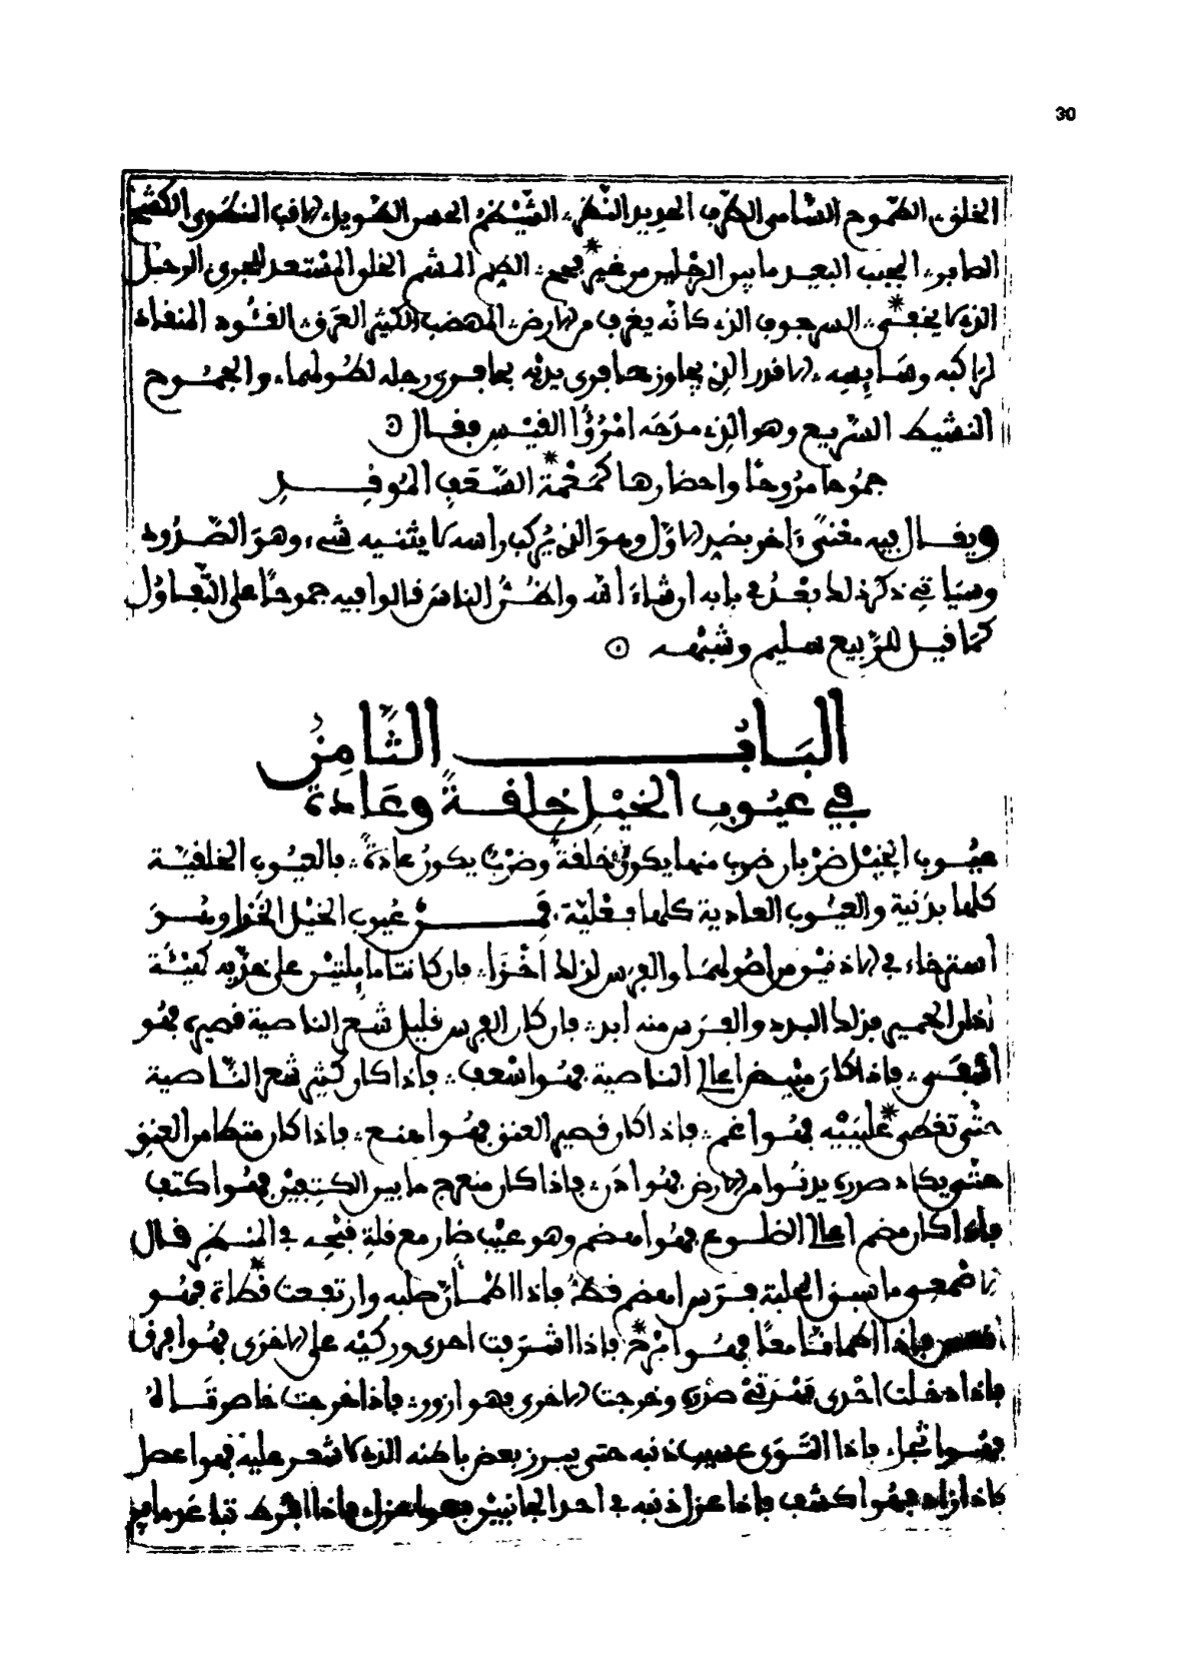 30
الخلق، الطموح السامى الطرف الحديد النظر، الشيظم الحسن الطويل، الاقب المنطوى الكشح
الضامر، المجنب البعيد ما بين الرجلين من غير فحج، المشمر الخلق المستعد للجرى، الرجيل
الذى لا يحفى، السرحوب الذى كانه يغرف من الارض، المهضب الكثير العرق، القئود المنقاد
لراكبه وسايسه، الاقدر الذى يجاوز حافرى يديه بحافرى رجله لطولهما، والجموح
النشيط السريع وهو الذى مدحه امرؤ القيس فقال
جموحا مروحا واحضارها كمعمعة السعف الموقد
ويقال فيه معنى اخر بضد الاول وهو الذى يركب راسه لا يثنيه شىء، وهو الضرود
وسياتى ذكر ذلك بعد فى بابه ان شاء الله واظن الناس قالوا فيه جموحا على التفاول
كما قيل للديغ سليم وشبهه
الباب الثامن
فى عيوب الخيل خلقة وعادة
عيوب الخيل ضربان ضرب منها يكون خلقة وضرب يكون عادة، فالعيوب الخلقية
كلها بدنية والعيوب العادية كلها فعلية، فمن عيوب الخيل الخذا وهو
استرخاء فى الاذنين من اصولهما والفرس لذلك اخذا، فان كانتا مايلتين على خديه كهيئة
اذان الحمير فذلك البدد والفرس منه ابد، فان كان الفرس قليل شعر الناصية قصيره فهو
اسفى، فاذا كان مبيض اعالى الناصية فهو اسعف، فاذا كان كثير شعر الناصية
حتى تغطى عينيه فهو اغم، فاذا كان قصير العنق فهو اهنع، فاذا كان متطامن العنق
حتى يكاد صدره يدنو من الارض فهو ادن، فاذا كان منفرج ما بين الكتفين فهو اكتف
فاذا كان مضم اعالى الضلوع فهو اهضم وهو عيب ضار مع قلة قبحه فى المنظر قال
الاصمعى ما سبق الحلبة فرس اهضم قط، فاذا اطمان صلبه وارتفعت قطاته فهو
اقعس فاذا اطمانتا معا فهو ابزخ فاذا اشرفت احدى وركيه على الاخرى فهو افرق
فاذا دخلت احدى فهدتى صدره وخرجت الاخرى فهو ازور، فاذا خرجت خاصرتاه
فهو اثجل، فاذا التوى عسيب ذنبه حتى يبرز بعض باطنه الذى لا شعر عليه فهو اعصل
فاذا زاد فهو اكشف فاذا عزل ذنبه فى احد الجانبين فهو اعزل، فاذا افرط تباعد ما بين